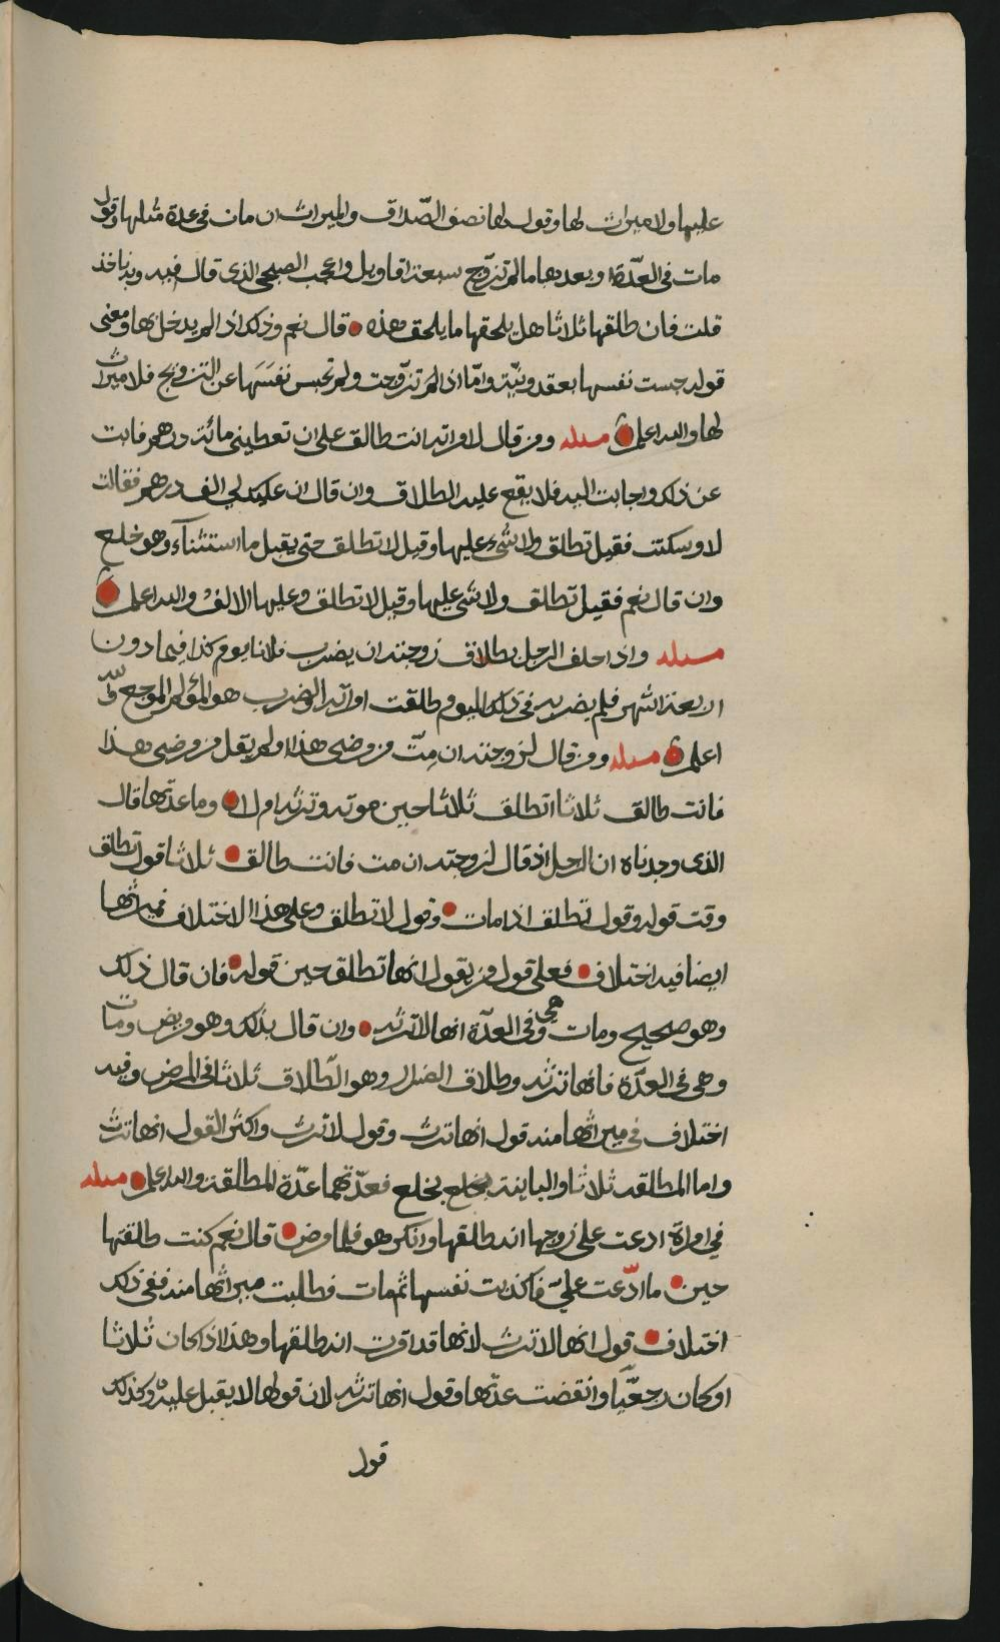 عليها ولا ميراث لها وقول لها نصف الصّداق والميراث ان مات في عدة مثلها وقول
مات في العدّة وبعدها ما لم تزوّج سبعة اقاويل واعجب الصبحي الذي قال فيه وبه ناخذ
قلت فان طلقها ثلاثا هل يلحقها ما يلحق هذه قال نعم وذلك اذا لم يدخل بها ومعنى
قوله حبست نفسها بعقد ونيّة وامّا اذا لم تزوّجت ولم تحبس نفسَهَا عن التزويج فلا ميراث
لها والله اعلم مسله ومن قال لامراته انت طالق على ان تعطيني مائة درهم فابت
عن ذلك واجابت اليه فلا يقع عليه الطلاق وان قال ان عليك لي الف درهم فقالت
لا وسكتت فقيل تطلق ولا شيء عليها وقيل لا تطلق حتى يقبل ما استثناء وهو خلع
وان قال نعم فقيل تطلق ولا شي عليها وقيل لا تطلق وعليها الالف والله اعلم
مسله واذا حلف الرجل بطلاق زوجته ان يضرب فلانا يوم كذا فيما دون
اربعة اشهر فلم يضربه في ذلك اليوم طلقت امراته والضرب هو المؤلم الموجع والله
اعلم مسله ومن قال لزوجته ان مِتّ من مرضي هذا او لم يقل من مرضي هذا
فانت طالق ثلاثا اتطلق ثلاثا حين موته وترثه ام لا وما عدتها قال
الذى وجدناه ان الرجل اذ قال لزوجته ان مت فانت طالق ثلاثا قول تطلق
وقت قوله وقول تطلق اذا مات وقول لا تطلق وعلى هذا الاختلاف فميراثها
ايضا فيه اختلاف فعلى قول من يقول انها تطلق حين قوله فان قال ذلك
وهو صحيح ومات وهي في العدّة انها لا ترثه وان قال بذلك وهو مريض ومات
وهي في العدّة فانها ترثه وطلاق الضرار وهو الطّلاق ثلاثا في المرض وفيه
اختلاف في ميراثها منه قول انها ترث وقول لا ترث واكثر القول انها ترث
واما المطلقه ثلاثا والباينة بخلع فعدّتهما عدّة المطلقة والله اعلم مسله
في امراة ادعت على زوجها انه طلقها وانكر هو فلما مرض قال نعم كنت طلقتها
حين ما ادّعت عليّ فاكذبت نفسها ثم مات فطلبت ميراثها منه ففي ذلك
اختلاف قول انها لا ترث لانها قد اقرت انه طلقها وهذا اذا كان ثلاثا
او كان رجعيّا وانقضت عدتها وقول انها ترثه لان قولها لا يقبل عليه وكذلك
قول